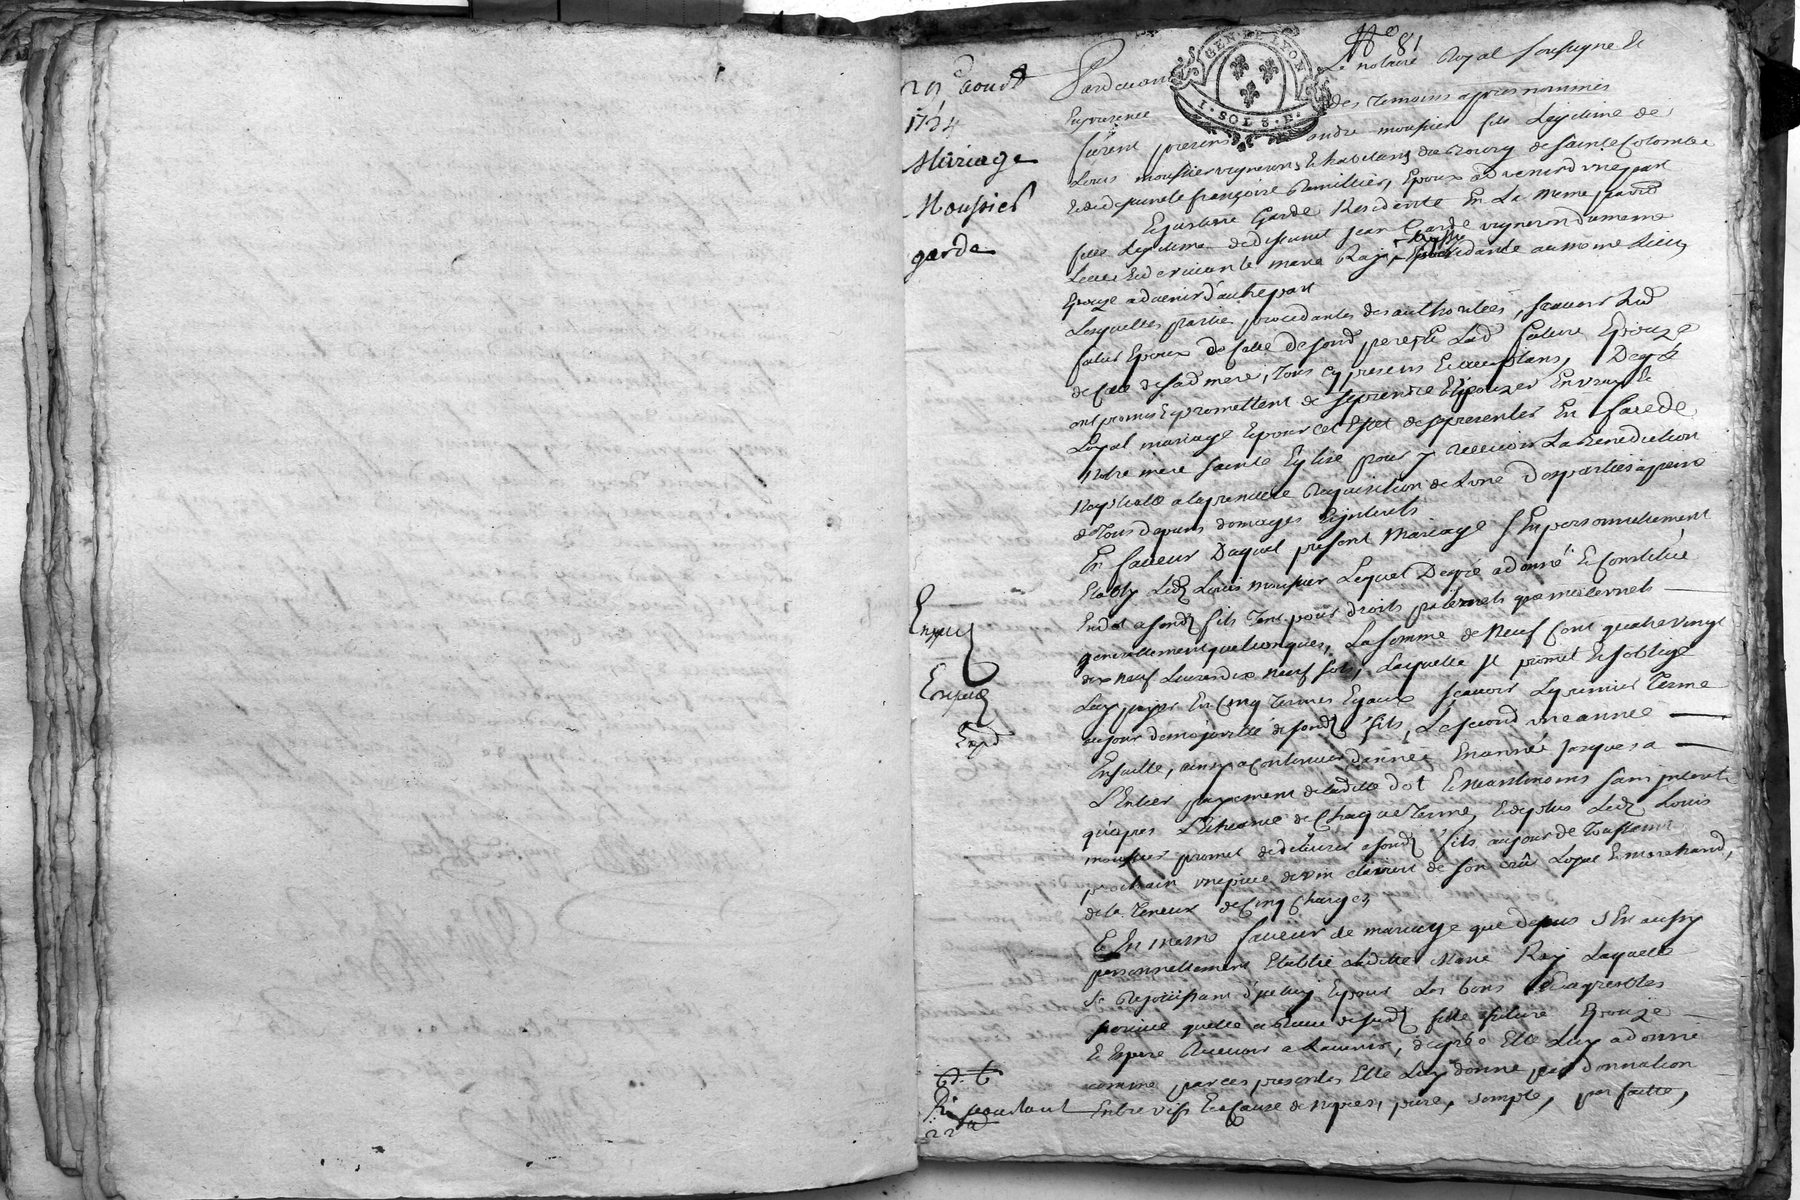 N° 81
GEN. DE LYON
I. SOL 8. D.
29e aoust
1734
Mariage
Mousier
garde
Pardevant Le notaire Royal soussigne et
En presence des temoins apres nommés
furent presens andre mousier fils Legitime de
Louis mousier vigneron, et habitans du Bourg de sainte Colombe
et de deffunte françoise Epoux advenir d'une part
Et garde Residente En La meme parr.
fille Legitime de deffunt jean Garde vigneron du meme
Lieu et de vivante marie Rey, Residante au meme Lieu,
Epouze advenir d'autre part
Lesquelles parties procedantes des authoritées, scavoir Led.
futur Epoux de celle de sond. pere, et Lad. future Epouze
de celle de sad. mere, tous cy presens et acceptans, De gré
ont promis et promettent de se prendre et Epouzer En vray et
Loyal mariage et pour cet Effet de se presenter En face de
Notre mere sainte Eglise pour y recevoir La Benediction
Nuptialle a la premiere Requisition de L'une Des parties a peine
de tous depens domages et jnterets
En faveur Duquel present Mariage s'est personnellement
Etably Led. Louis mousier Lequel De gré a donné et Constitué
En dot a sond. fils tant pour droits paternels que maternels
generallement quelconques, La somme de Neuf Cent quatre vingt
dix Neuf Livres dix Neuf sols, Laquelle jl promet et s'oblige
Luy payer En Cinq termes Egaux scavoir Le premier terme
au jour de majorité de sond. fils, Le second une année
Ensuitte, ainsy a continuer d'année En année jusques a
L'Entier payement de laditte dot et neantmoins sans jnterets
qu'apres L'Echeance de Chaque terme, et de plus Led. Louis
mousier promet de delivrer a sond. fils au jour de Toussaint
prochain une piece de vin clairet de son crû Loyal et marchand,
de la teneur de Cinq Charges
Et En meme faveur de mariage que dessus s'est aussy
personnellement Etablie Laditte Marie Rey Laquelle
se Rejouissant d'iceluy et pour Les bons et agreables
services quelle a Receu de sad. fille future Epouze
et Espere Recevoir a Lavenir, de gré Elle Luy a donné
comme par ces presentes Elle Luy donne par donnation
Entre vifs et a Cause de Nopces, pure, simple, parfaitte,
Exped.
Exped.
Exp.d